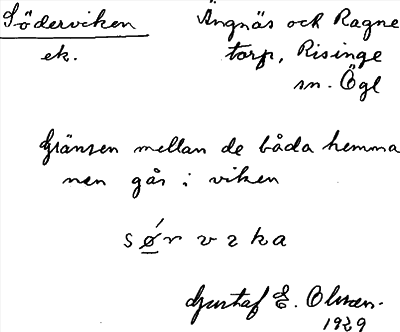 Söderviken Ängnäs och Ragne
ek. torp, Risinge
sn. Ögl
Gränsen mellan de båda hemma
nen går i viken
s ǿ r v ı k a
Gustaf E. Olsson.
1929